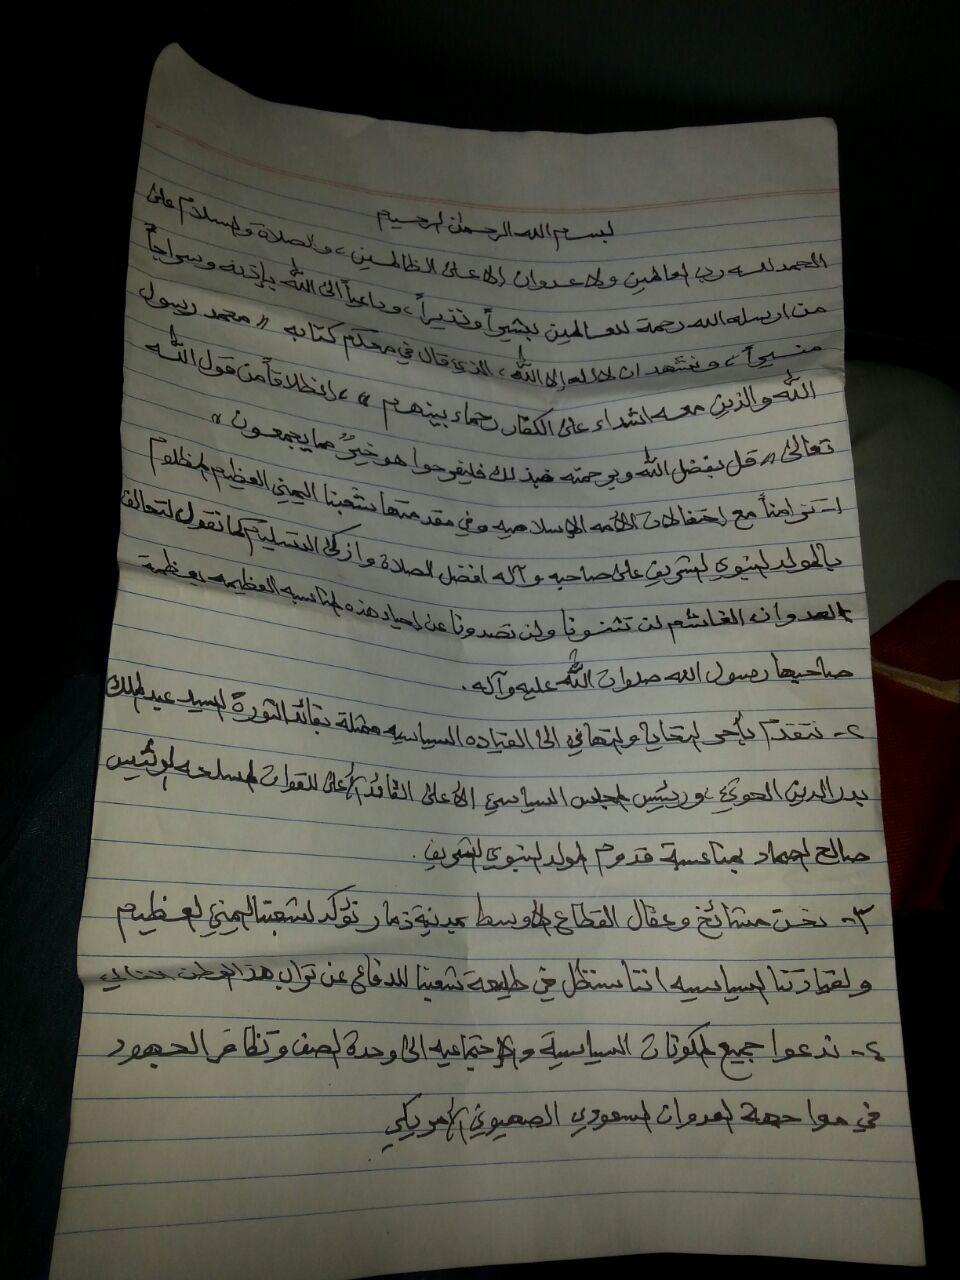 بسم الله الرحمن الرحيم
الحمد لله رب العالمين ولا عدوان الا على الظالمين، والصلاة والسلام على
من ارسله الله رحمة للعالمين بشيراً ونذيراً، وداعياً الى الله بإذنه وسراجاً
منيراً، ونشهد ان لا اله إلا الله، الذي قال في محكم كتابه " محمد رسول
الله والذين معه اشداء على الكفار رحماء بينهم "، إنطلاقاً من قول الله
تعالى " قل بفضل الله وبرحمته فبذلك فليفرحوا هو خيرٌ مما يجمعون "
١- تزامناً مع إحتفالات الأمه الإسلاميه وفي مقدمتها شعبنا اليمني العظيم المظلوم
بالمولد النبوي الشريف على صاحبه وآله افضل الصلاة وازكى التسليم كما نقول لتحالف
العدوان الغاشم لن تثنونا ولن تصدونا عن إحياء هذه المناسبه العظيمه بعظمة
صاحبها رسول الله صلوات الله عليه وآله.
٢- نتقدم بأحر التحايا والتهاني الى القياده السياسيه ممثلة بقائد الثورة السيد عبدالملك
بدرالدين الحوثي، ورئيس المجلس السياسي الأعلى القائد الأعلى للقوات المسلحه الرئيس
صالح الصماد بمناسبة قدوم المولد النبوي الشريف.
٣- نحن مشائخ وعقال القطاع الاوسط بمدينة ذمار نؤكد لشعبنا اليمني العظيم
ولقيادتنا السياسيه اننا سنظل في طليعة شعبنا للدفاع عن تراب هذا الوطن الغالي
٤- ندعوا جميع المكونات السياسية والإجتماعيه الى وحدة الصف وتظافر الجهود
في مواجهة العدوان السعودي الصهيوني الأمريكي